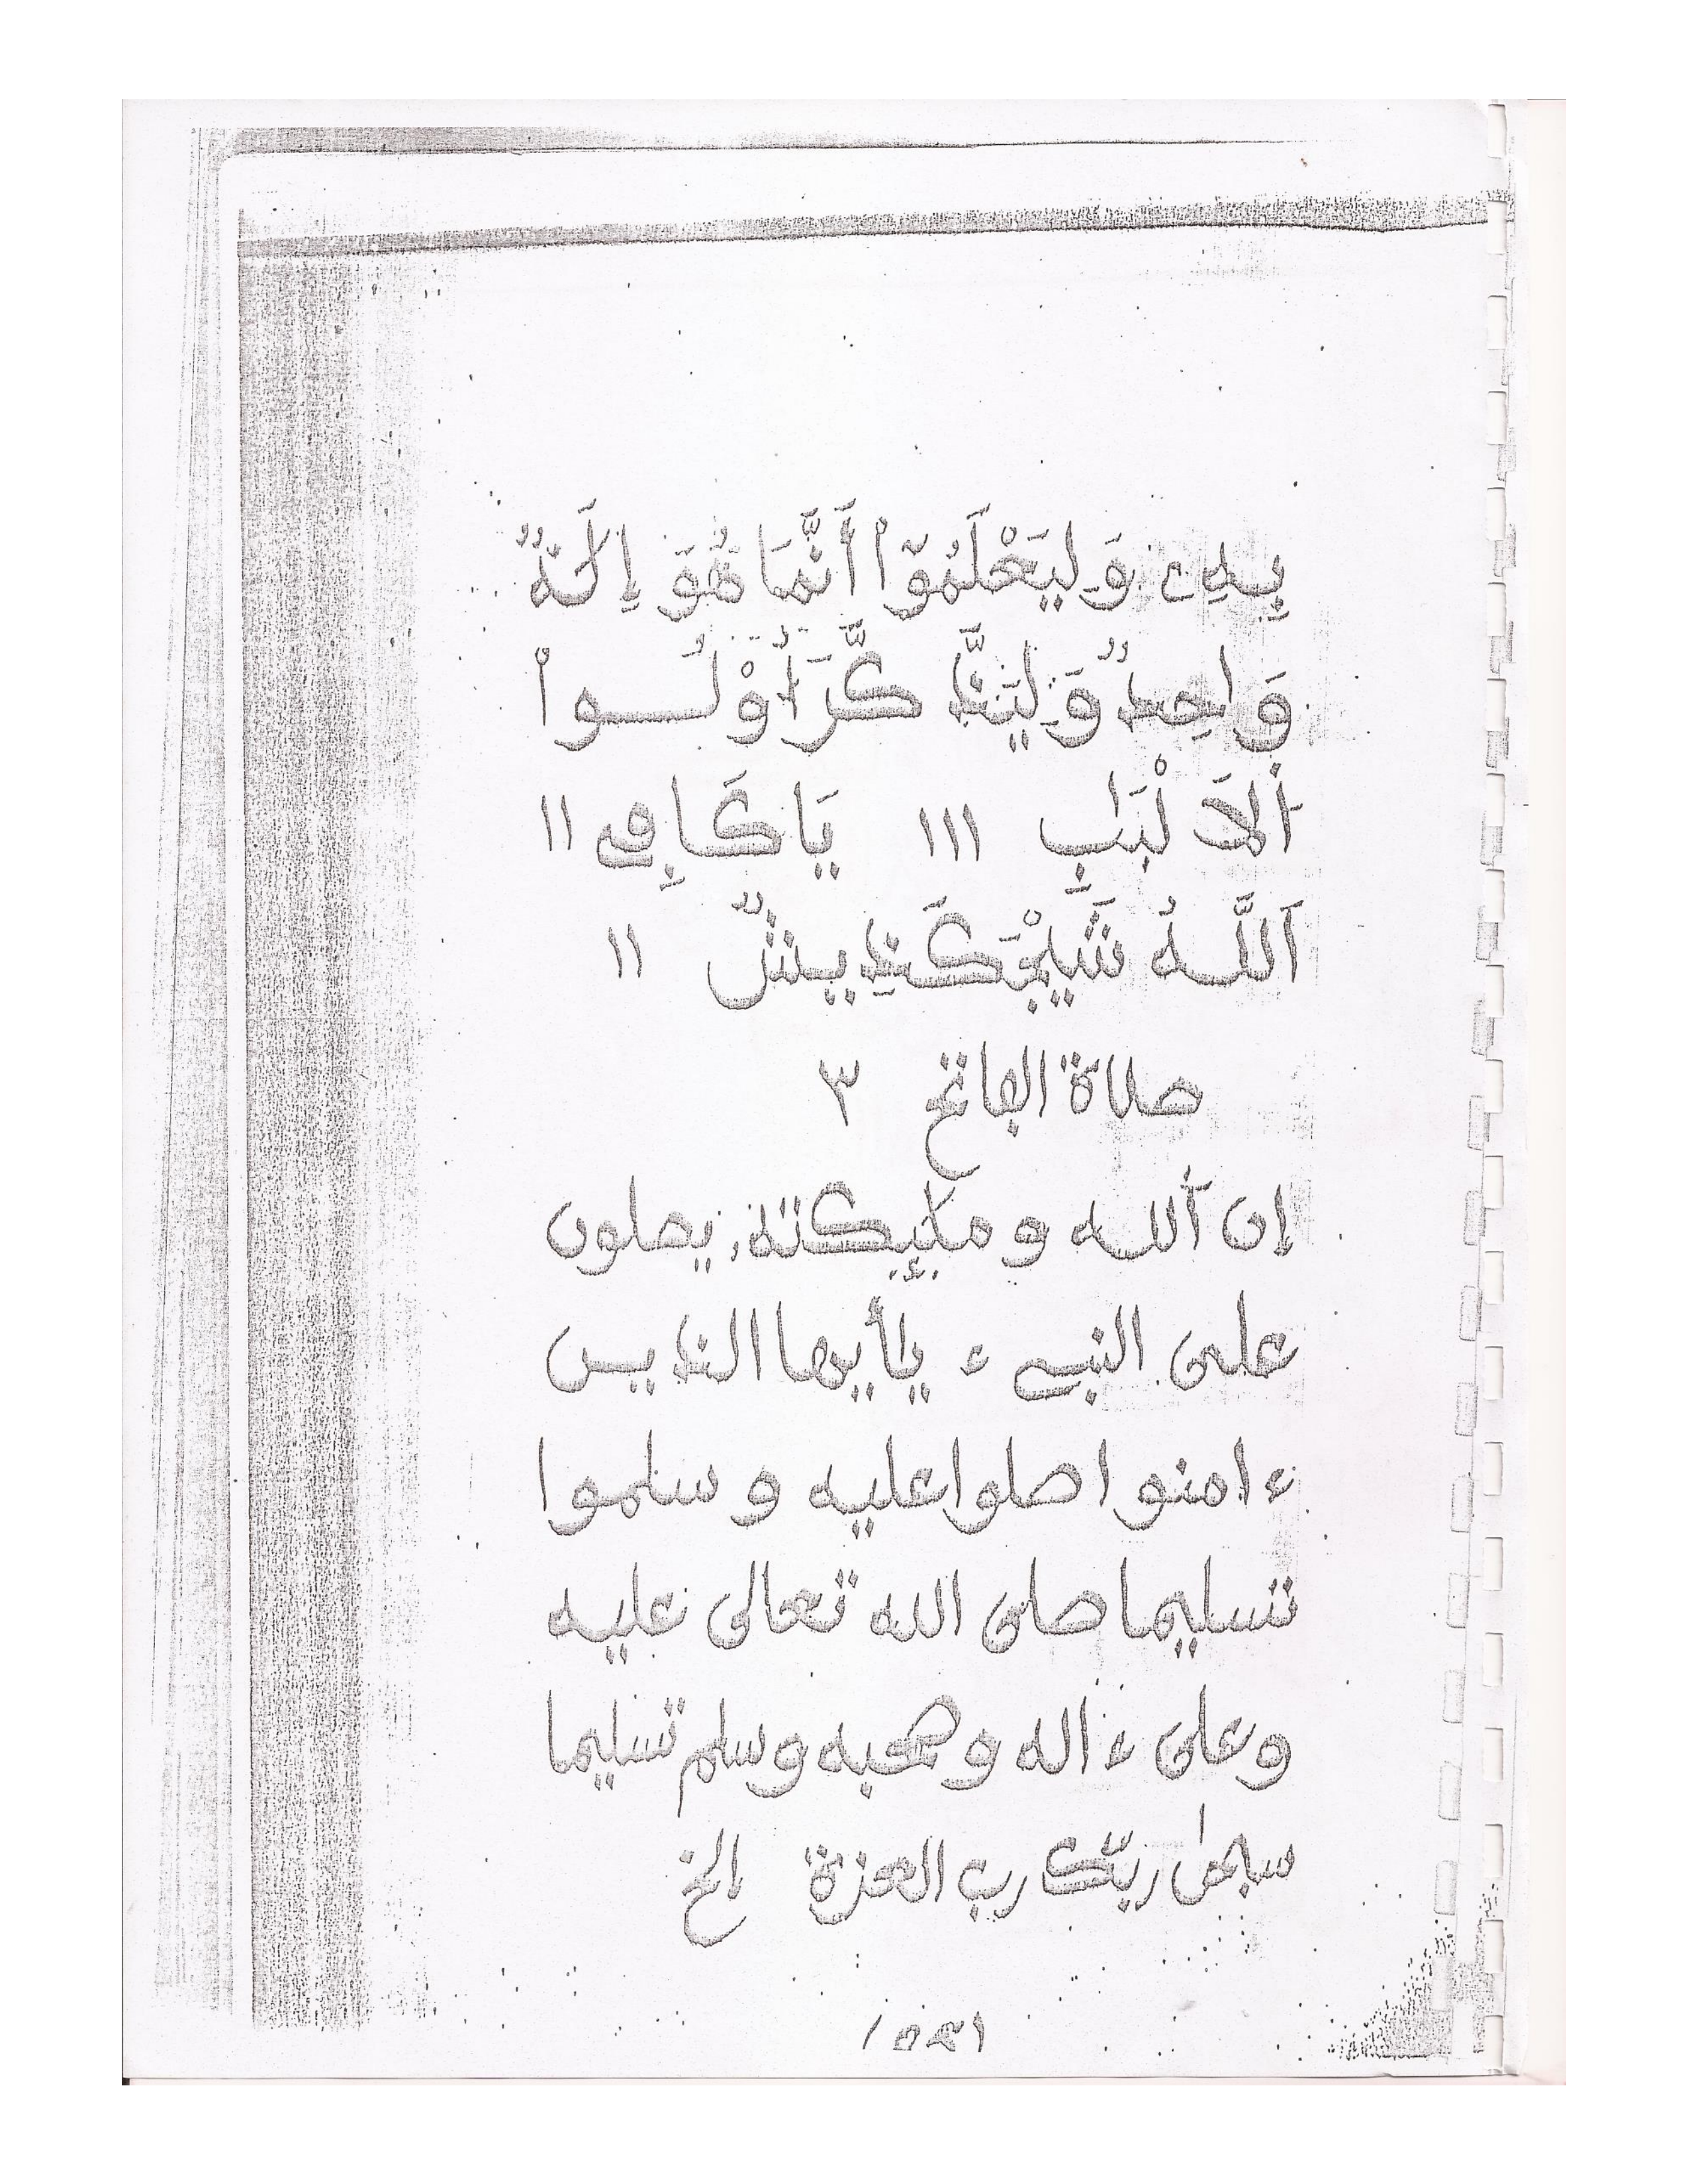 بِهِۦ وَلِيَعْلَمُوٓاْ أَنَّمَا هُوَ إِلَٰهٌ
وَاحِدٌ وَلِيَذَّكَّرَ أُوْلُــواْ
اَ۬لَالْبَٰبِ ١١١ يَا كَافِي ١١
اَللَّهُ ١١
صلاة الفاتح ٣
إن اَ۬لله و ملٰٓئكته يصلون
على النبيء يٰأيها الذين
ءامنوا صلوا عليه و سلموا
تسليما صلى الله تعالى عليه
وعلى ءاله وصحبه وسلم تسليما
سبحٰن ربّك رب العزة إلخ